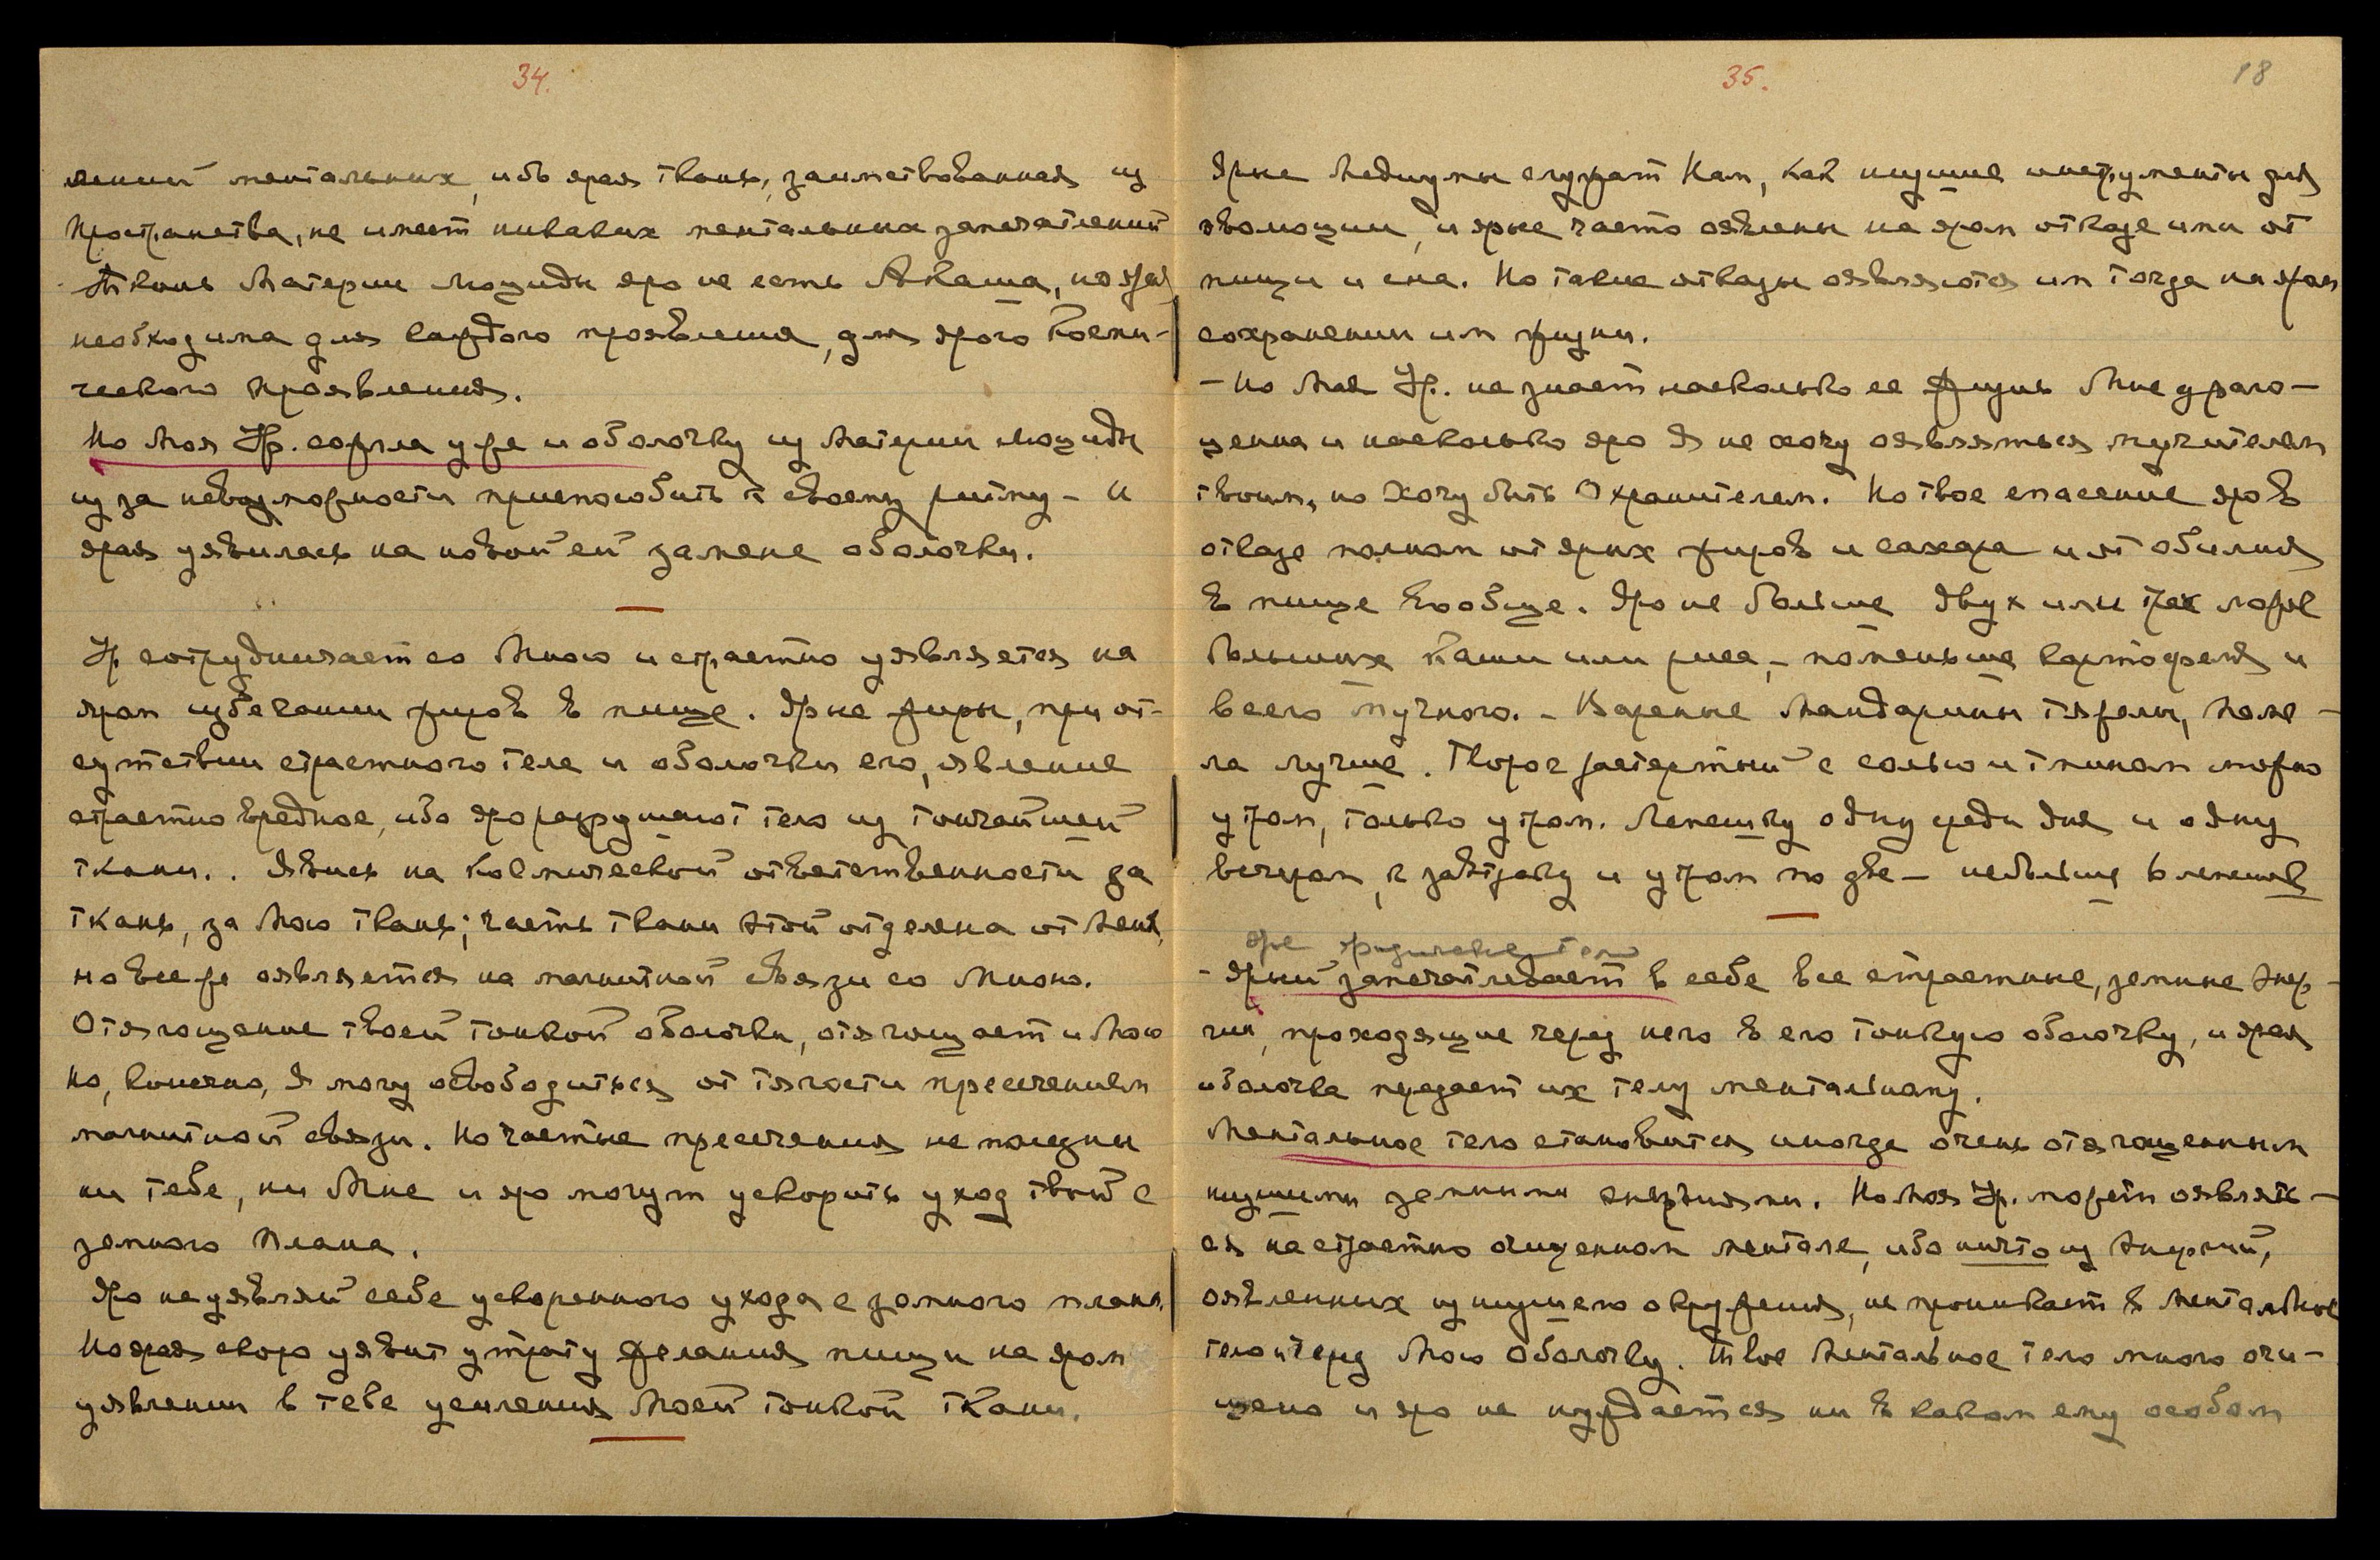 34.
лений ментальных, ибо ярая ткань, заимствованная из
пространства, не имеет никаких ментальных запечатлений
Ткань Материи Люциды яро не есть Акаша, но ярая
необходима для каждого проявления, для ярого Косми-
ческого проявления.
Но Моя Ур. сожгла уже и оболочку из Материи Люциды
из за невозможности приспособить к своему ритму – и
ярая уявилась на новой ей замене оболочки.
Ур. сотрудничает со Мною и страстно уявляется на
яром избегании жиров в пище. Ярые жиры, при от-
сутствии страстного тела и оболочки его, явление
страстно вредное, ибо яро разрушают тело из тончайшей
ткани.. Явись на Космической ответственности за
ткань, за Мою ткань; часть ткани этой отделена от Меня,
но все же оявляется на магнитной связи со Мною.
Отягощение твоей тонкой оболочки, отягощает и Мою
Но, конечно, Я могу освободиться от тягости пресечением
магнитной связи. Но частые пресечения не полезны
ни тебе, ни Мне и яро могут ускорить уход твой с
земного плана.
Яро не уявляй себе ускоренного ухода с земного плана.
Но ярая скоро уявит утрату желания пищи на яром
уявлении в тебе усиления Моей тонкой ткани.
35.
18
Ярые Медиумы служат Нам, как низшие инструменты для
эволюции, и ярые часто оявлены на яром отказе ими от
пищи и сна. Но такие отказы оявляются им тогда на яром
сохранении им жизни.
– Но Моя Ур. не знает насколько ее жизнь Мне драго-
ценна и насколько яро Я не хочу оявляться мучителем
твоим, но Хочу быть Охранителем. Но твое спасение яро в
отказе полном от ярых жиров и сахара и от обилия
в пище вообще. Яро не больше двух или трех ложек
больших каши или риса, – поменьше картофеля и
всего мучного. – Вареные Мандарины тяжелы, Поме-
ла лучше. Творог растертый с солью и тмином можно
утром, только утром. Лепешку одну среди дня и одну
вечером, к завтраку и утром по две – не больше 6 лепешек
ярое физическое тело
– Ярый запечатлевает в себе все страстные, земные энер-
гии, проходящие через него в его тонкую оболочку, и ярая
оболочка передает их телу ментальному.
Ментальное тело становится иногда очень отягощенным
низшими земными энергиями. Но Моя Ур. может оявлять-
ся на страстно очищенном ментале, ибо ничто из энергий,
оявленных из низшего окружения, не проникает в ментальное
тело через Мою Оболочку. Твое Ментальное тело много очи-
щено и яро не нуждается ни в каком ему особом